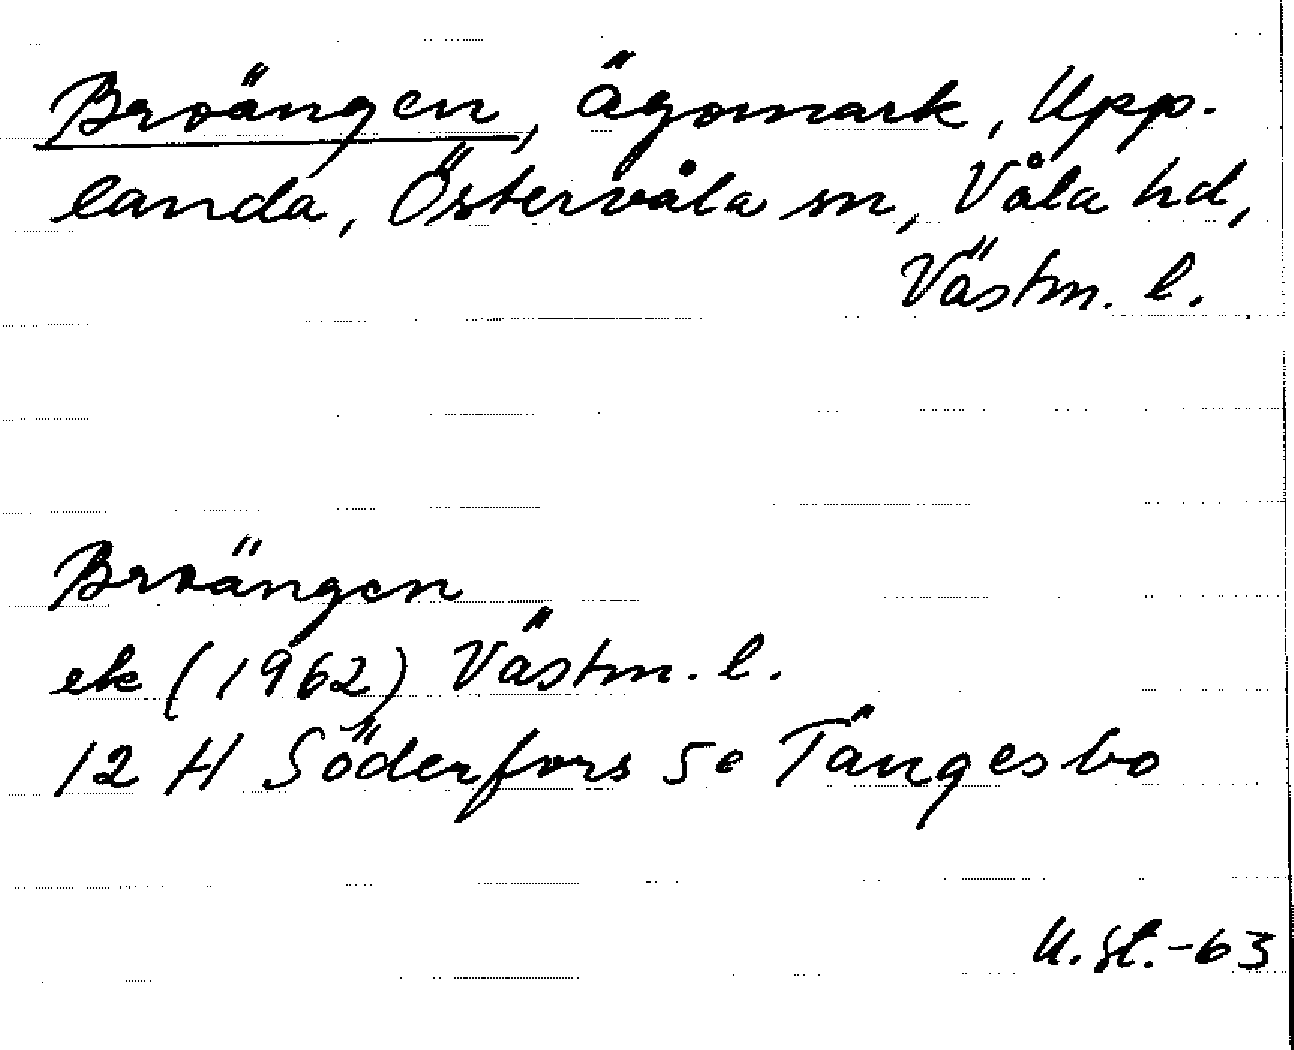 Broängen, ägomark, Upp-
landa, Östervåla sn, Våla hd,
Västm. l.
Broängen
ek (1962) Västm. l.
12 H Söderfors 5e Tängesbo
U. St. -63